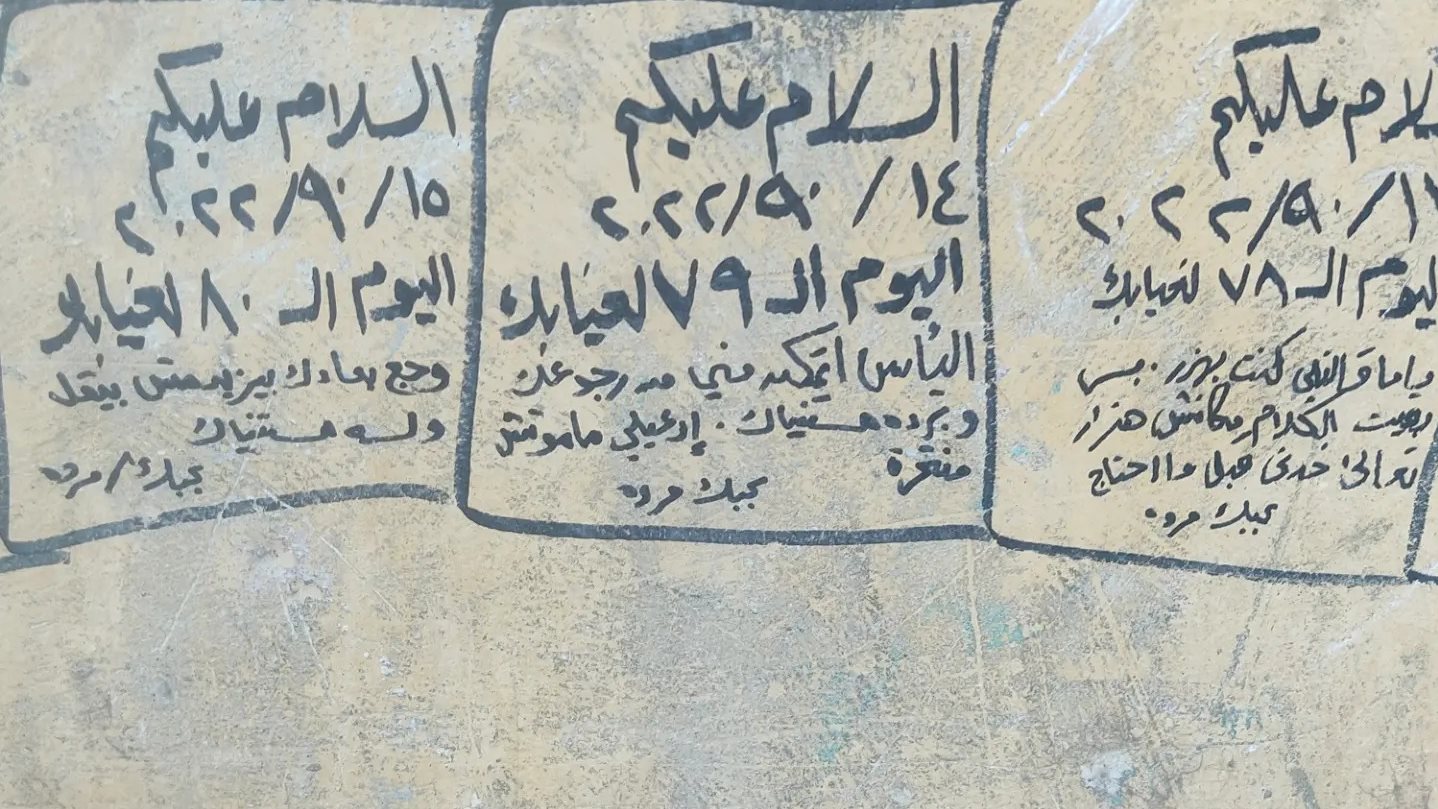 لام عليكم
/٠٩/٢٠٢٢
ليوم الـ ٧٨ لغيابك
ياما قالتلي كنت بهزر. بس
الكلام مكانش هزار
تعالى خدنى قبل ما احتاج
بحبك مروه
السلام عليكم
١٤/٠٩/٢٠٢٢
اليوم الـ ٧٩ لغيابك
اليأس اتمكن مني من رجوعك
وبرده مستنياك. إدعيلي ماموتش
منتحرة
بحبك مروه
السلام عليكم
١٥/٠٩/٢٠٢٢
اليوم الـ ٨٠ لغيابك
وجع بعادك بيزيد مش بيقل
ولسه مستنياك
بحبك/مروه